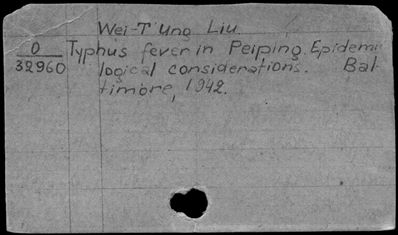 Wei-T'ung Liu.
O
32960
Typhus fever in Peiping. Epidemi
logical considerations. Bal
timore, 1942.